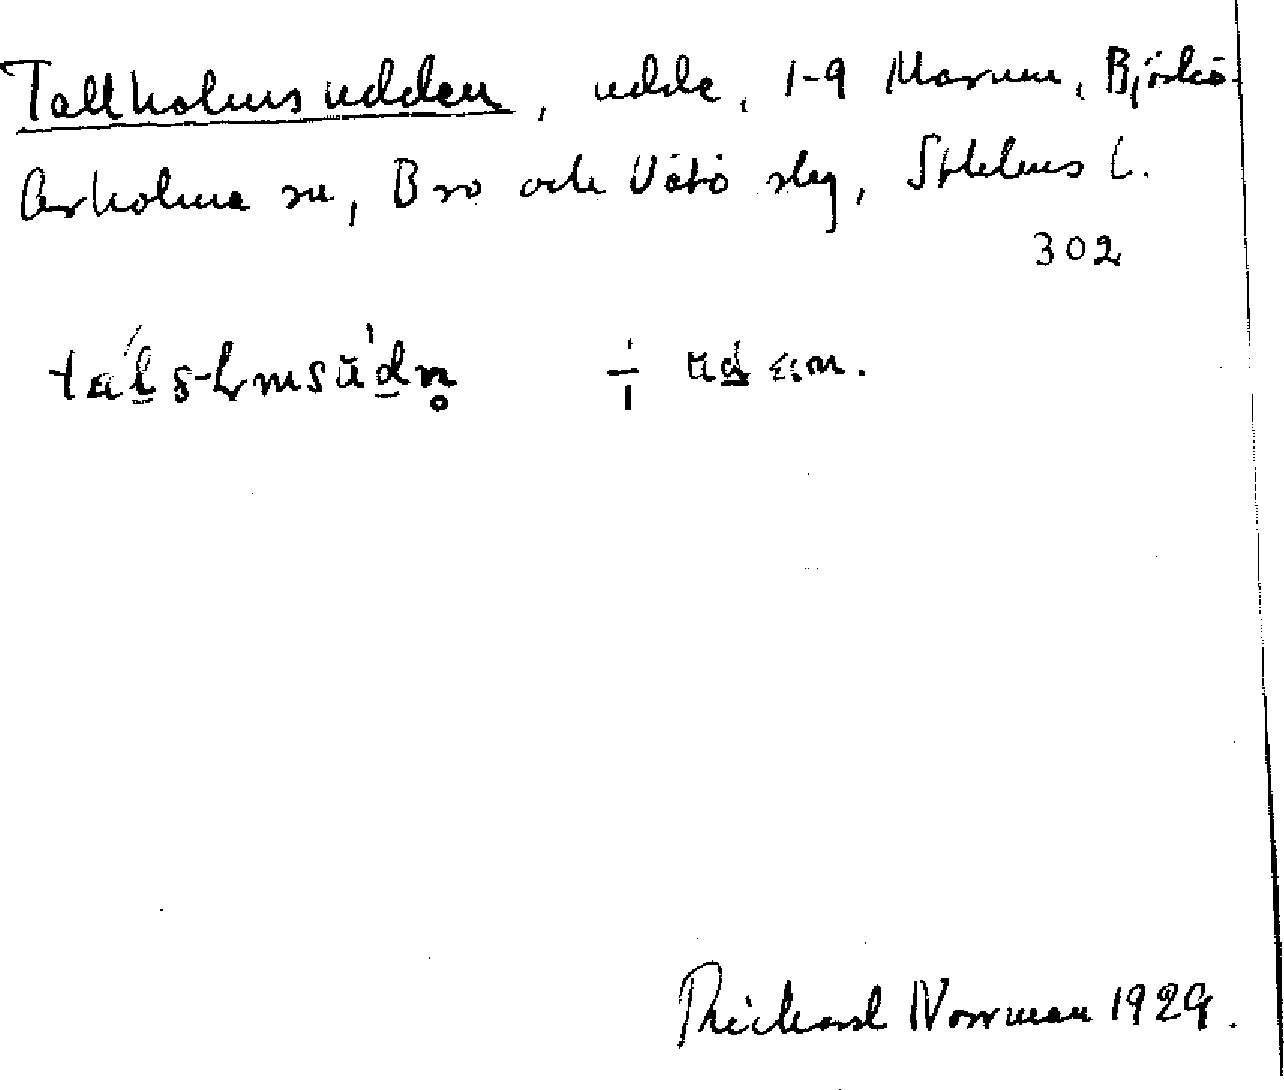 Tallholmsudden, udde, 1-9 Marum, Björkö-
Arholma sn, Bro och Vätö skg, Sthlms l.
302
Richard Norrman 1929.